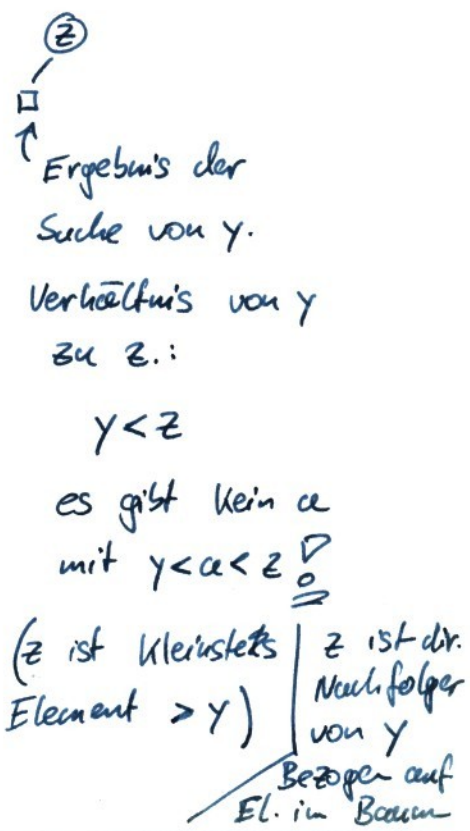 z
Ergebnis der
Suche von y.
Verhältnis von y
zu z.:
y < z
es gibt kein a
mit y < a < z !
(z ist kleinstes
Element > y)
z ist dir.
Nachfolger
von y
Bezogen auf
El. im Baum